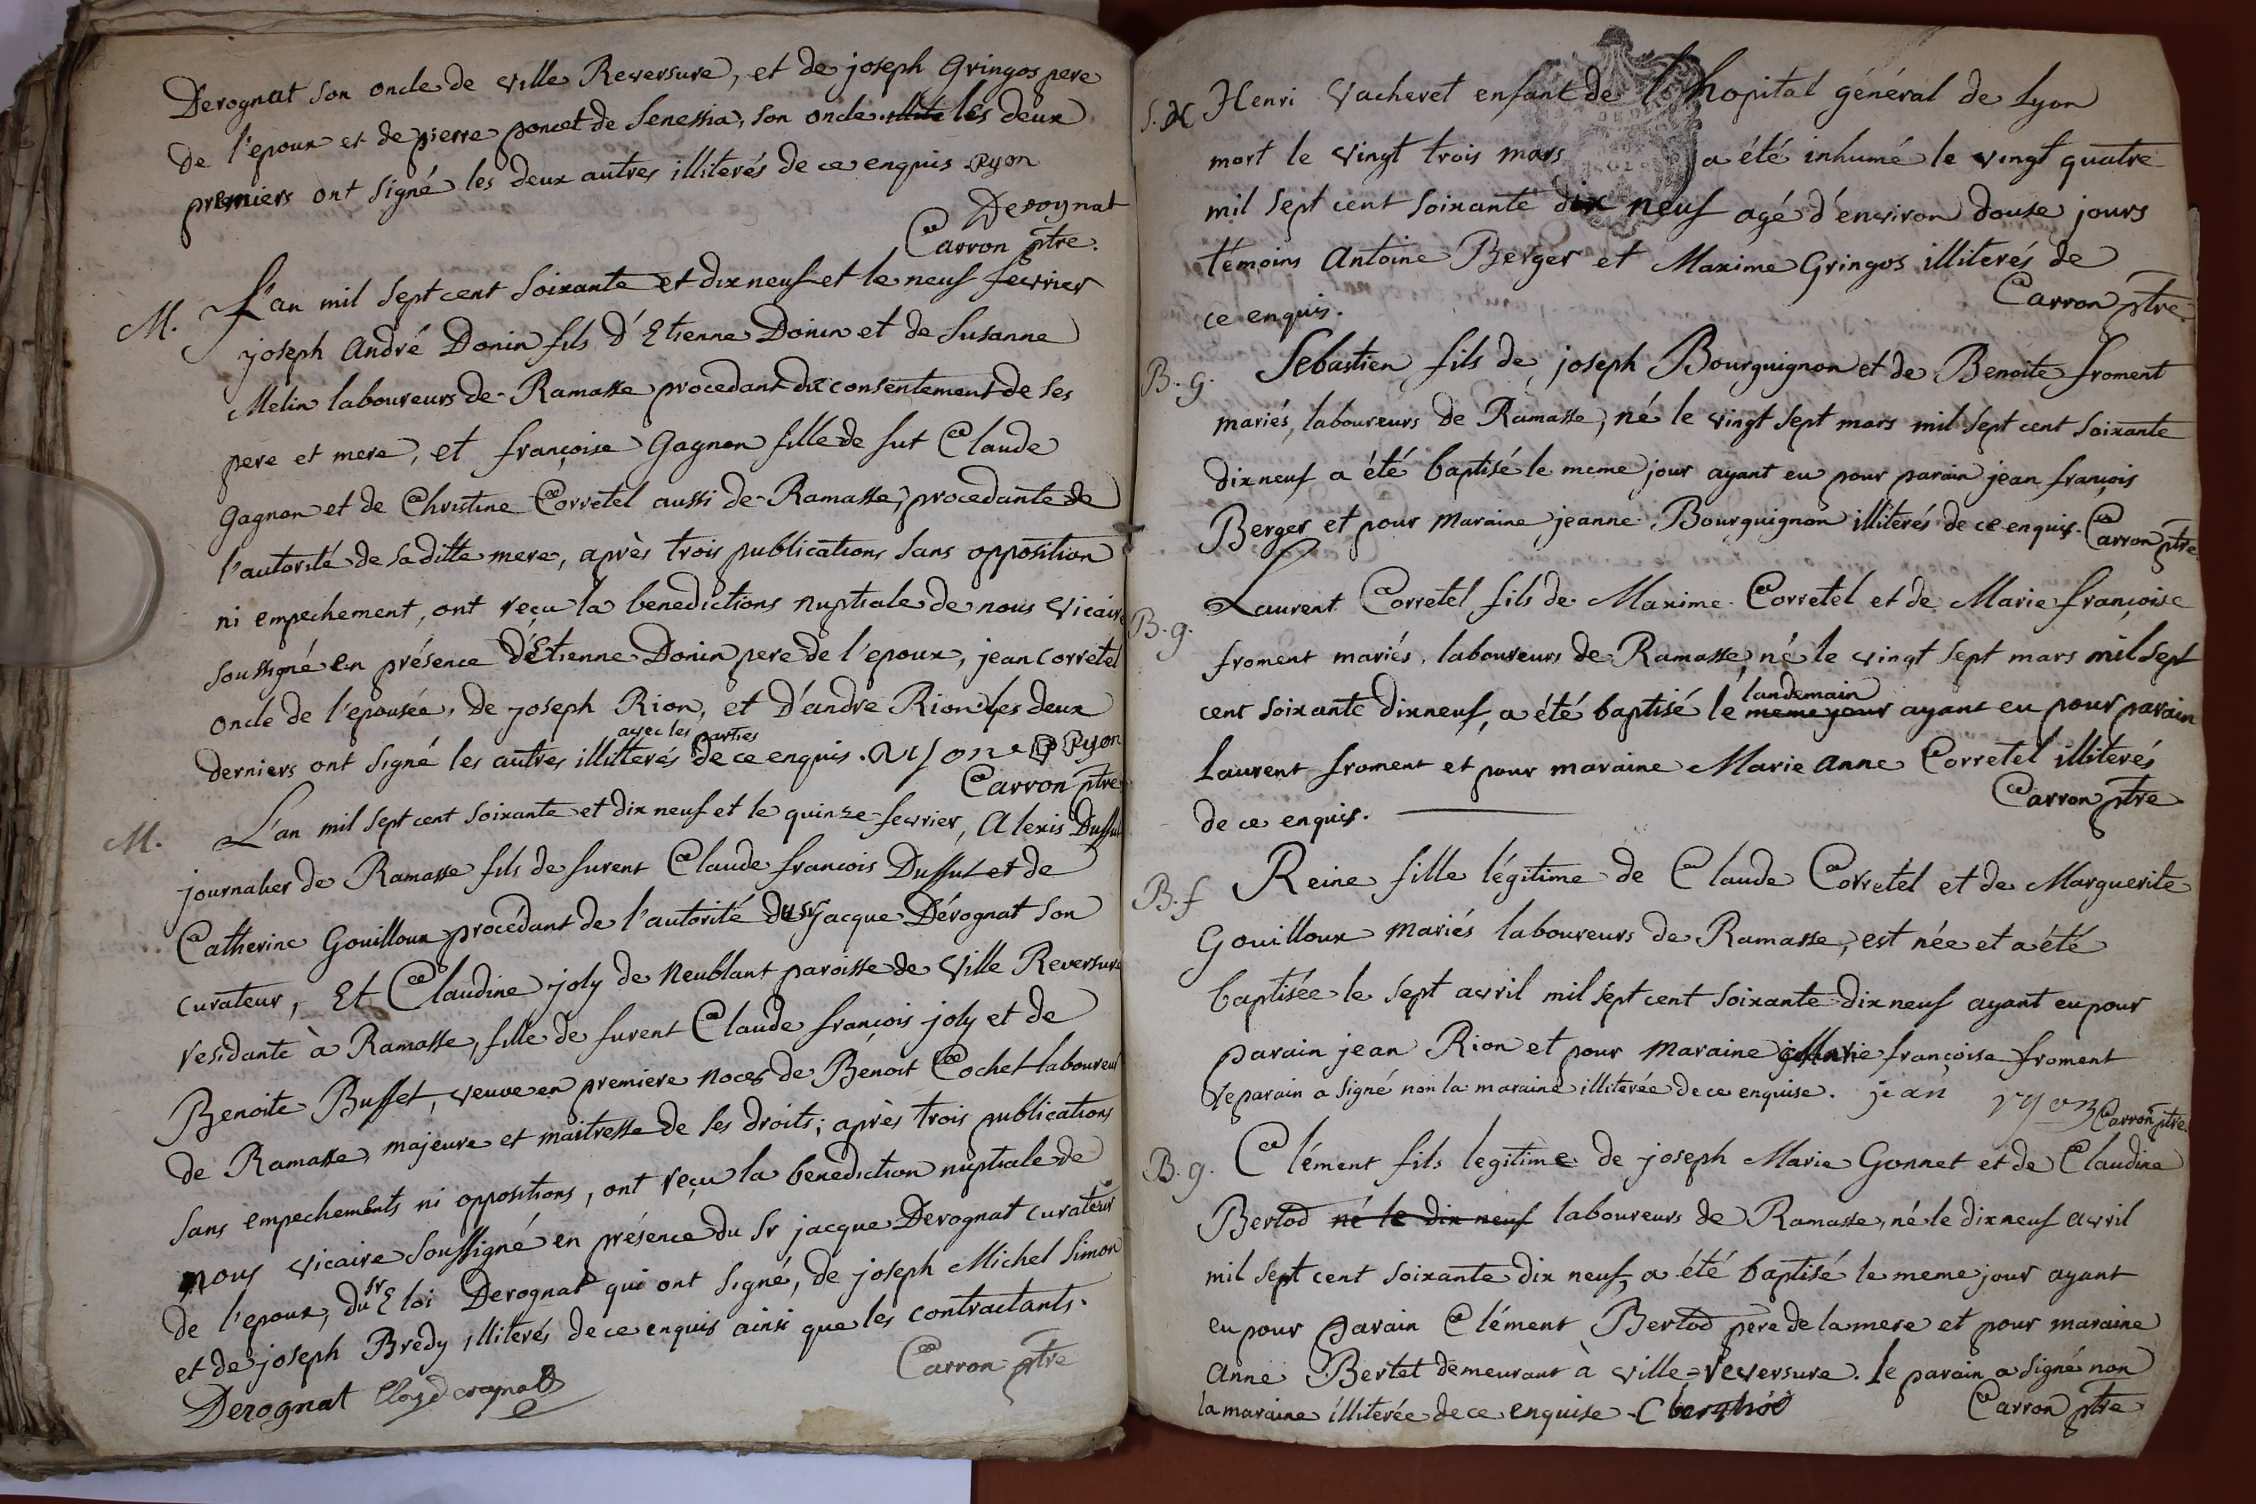 Derognat son oncle de ville Reversure, et de joseph Gringos pere
de l'epoux et de pierre poncet de Senessia, son oncle les deux
premiers ont signé les deux autres illiterés de ce enquis Ryon
Derognat
Carron ptre.
M. L'an mil sept cent soixante et dix neuf et le neuf fevrier
joseph André Donin fils d'Etienne Donin et de Susanne
Melin laboureurs de Ramasse procedant du consentement de ses
pere et mere, et françoise Gagnon fille de fut Claude
Gagnon et de Christine Corretel aussi de Ramasse, procedante de
l'autorité de sa ditte mere, après trois publications sans opposition
ni empechement, ont reçu la benedictions nuptiale de nous vicaire
soussigné en présence d'Etienne Donin pere de l'epoux, jean Corretel
oncle de l'epousée, de joseph Rion, et d'andré Rion les deux
avec les parties
derniers ont signé les autres illitterés de ce enquis. Ryon
Carron ptre
M. L'an mil sept cent soixante et dix neuf et le quinze fevrier, Alexis Duffut
journalier de Ramasse fils de furent Claude francois Duffut et de
Catherine Gouilloux procedant de l'autorité du sr jacque Dérognat son
curateur, Et Claudine joly de Neublant paroisse de ville Reversure
residante à Ramasse, fille de furent Claude françois joly et de
Benoite Buffet, veuve en premiere noces de Bénoit Cochet laboureur
de Ramasse, majeure et maitresse de ses droits; après trois publications
sans empechements ni oppositions, ont reçu la benediction nuptiale de
nous vicaire soussigné en présence du Sr jacque Derognat curateur
de l'epoux, du sr Eloi Derognat qui ont signé, de joseph Michel Simon
et de joseph Brédy illiterés de ce enquis ainsi que les contractants.
Carron ptre
Derognat Eloy derognat
S. Henri Vacheret enfant de l'hopital général de Lyon
mort le vingt trois mars a été inhumé le vingt quatre
mil sept cent soixante dix neuf agé d'environ douze jours
témoins Antoine Berger et Maxime Gringos illiterés de
ce enquis.
Carron ptre.
B. g. Sebastien fils de joseph Bourguignon et de Benoite froment
mariés, laboureurs de Ramasse, né le vingt sept mars mil sept cent soixante
dix neuf a été baptisé le meme jour ayant eu pour parain jean françois
Berger et pour maraine jeanne Bourguignon illiterés de ce enquis. Carron ptre
B. g. Laurent Corretel fils de Maxime Corretel et de Marie françoise
froment mariés, laboureurs de Ramasse, né le vingt sept mars mil sept
landemain
cent soixante dix neuf, a été baptisé le meme jour ayant eu pour parain
Laurent froment et pour maraine Marie Anne Corretel illiterés
de ce enquis.
Carron ptre
B. f Reine fille légitime de Claude Corretel et de Marguerite
Gouilloux mariés laboureurs de Ramasse, est née et a été
baptisée le sept avril mil sept cent soixante dix neuf ayant eu pour
parain jean Rion et pour maraine Marie françoise froment
le parain a signé non la maraine illiterée de ce enquise. jean ryon Carron ptre.
B. g. Clément fils legitime de joseph Marie Gonnet et de Claudine
Bertod né le dix neuf laboureurs de Ramasse, né le dix neuf avril
mil sept cent soixante dix neuf, a été baptisé le meme jour ayant
eu pour parain Clément Bertod pere de la mere et pour maraine
Anne Bertet demeurant à ville=reversure. le parain a signé non
la maraine illiterée de ce enquise. C berthod
Carron ptre